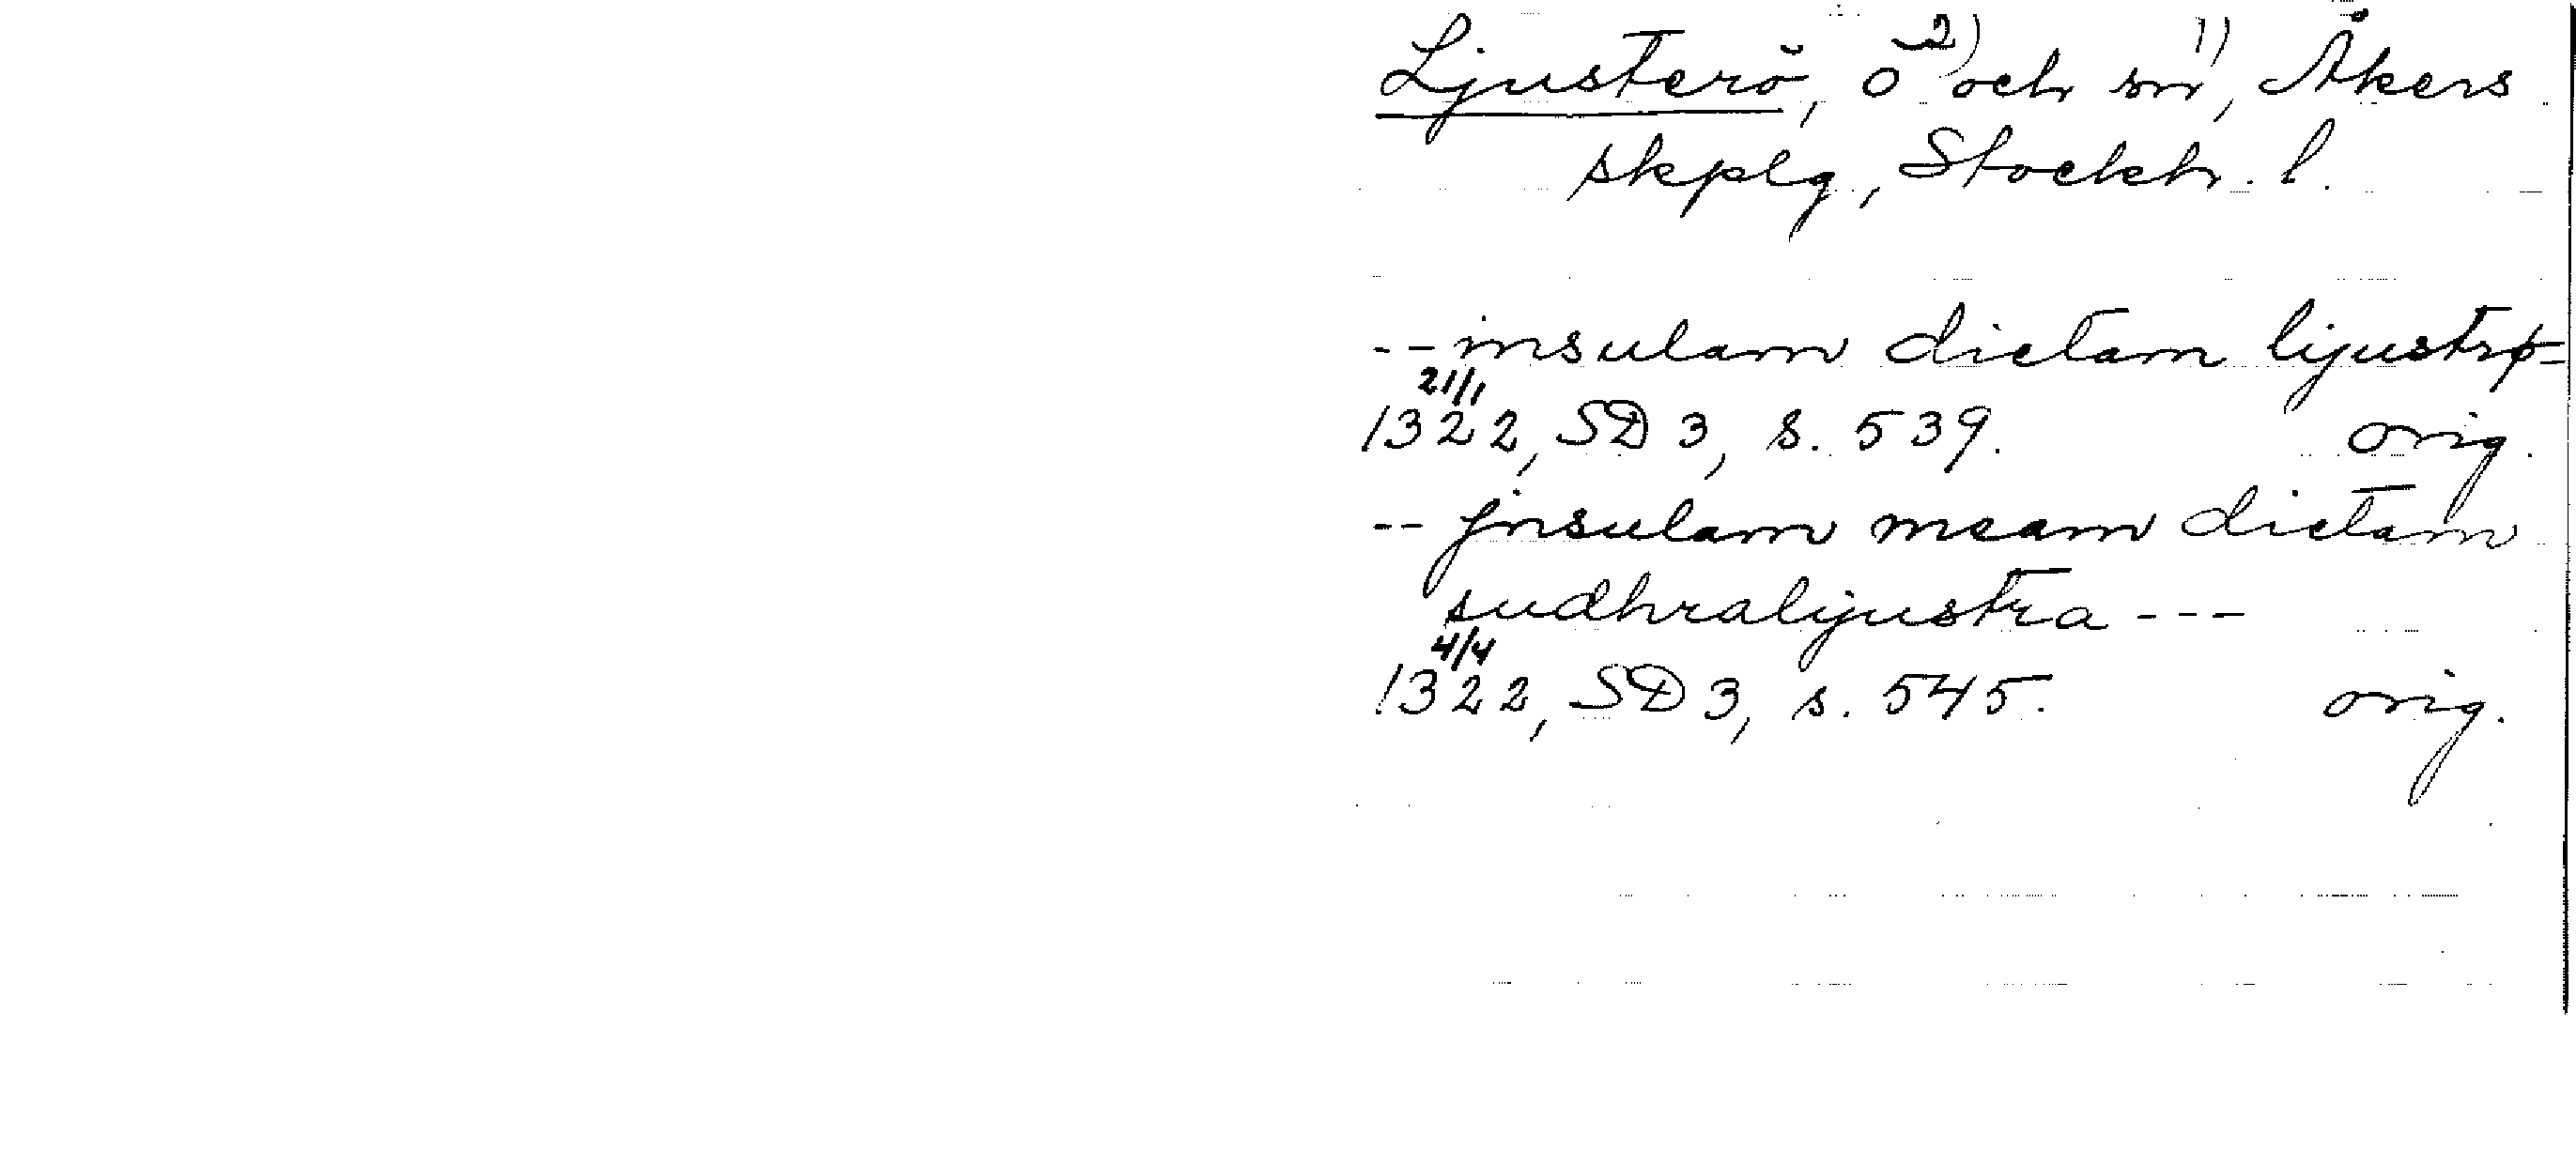 Ljusterö, ö 2) och sn 1), Åkers
skplg, Stockh. l.
-- insulam dictam lijustrø-
1322 21/1, SD 3, s. 539. orig.
-- jnsulam meam dictam
sudhralijustra ---
1322 4/4, SD 3, s. 545. orig.